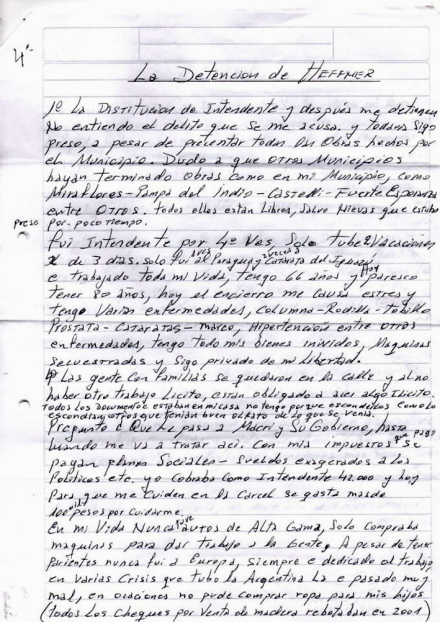 4º-
La Detencion de HEFFNER
1º La Distitucion de Intendente y después me detienen
No entiendo el delito que se me acusa, y todavia sigo
preso, a pesar de presentar todas las Obras hechas por
el Municipio. Dudo a que otros Municipios
hayan terminado obras como en mi Municipio, como
Miraflores - Pampa del Indio - Castelli - Fuerte Esperanza
entre Otros. todos ellos están Libres, Salvo Nievas que estubo
preso por poco tiempo.
Fui Intendente por 4º Ves, Solo tube 2 Vacaciones
x de 3 dias. solo fui al Paraguay y Catarata del Iguazú
e trabajado toda mi Vida, tengo 66 años y Hoy paresco
tener 80 años, hoy el encierro me causa estres y
tengo Varias enfermedades, Columna - Rodilla - Tobillo
Prostata - Cataratas - mareo, Hipertencion entre otros
enfermedades, tengo todo mis bienes inividos, Maquinas
Secuestradas y Sigo privado de mi Libertad.
Las gente con familias se quedaron en la calle y al no
haber otro trabajo Licito, estan obligado a acer algo Ilicito.
todos los documentos estaban en mi casa no tengo porque esconderlos como lo
escondian otros que tenian bien claro de lo que se venia.
Pregunto a Que le pasa a Macri y Su Gobierno, hasta
cuando me va a tratar aci. Con mis impuestos que pago se
pagan planes Sociales - Sueldos exagerados a los
Politicos etc. yo cobraba como Intendente 42.000 y hoy
Para que me cuiden en la Carcel se gasta mas de
100 mil pesos por cuidarme.
En mi Vida Nunca tuve autos de Alta Gama, Solo compraba
maquinas para dar trabajo a la Gente, A pesar de tener
Parientes nunca fui a Europa, Siempre e dedicado al trabajo
en Varias Crisis que tubo la Argentina La e pasado muy
mal, en ocaciones no pude comprar ropa para mis hijos
(todos Los Cheques por Venta de madera rebotaban en 2001)